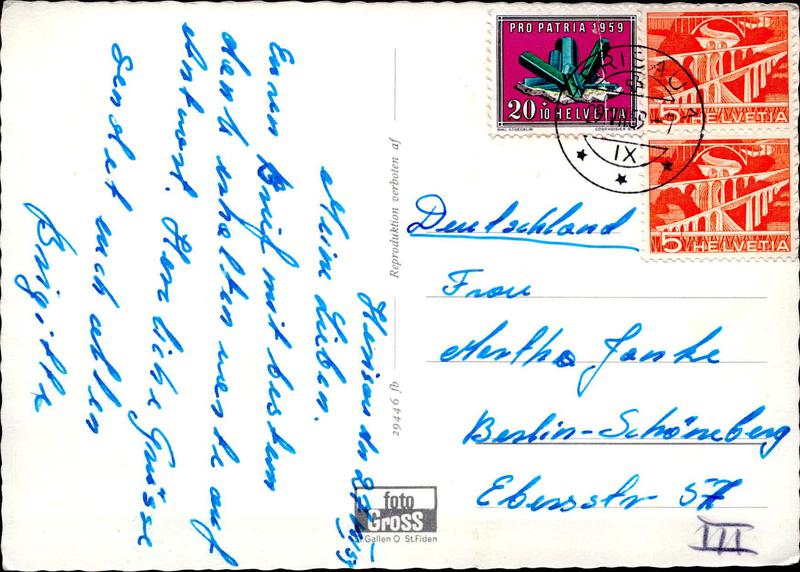 Herisau
Meine Lieben.
Euren Brief mit bestem
dank erhalten warte auf
Antwort. Herzliche Grüsse
sendet euch allen
Brigitte
Reproduktion verboten af
29446 fb
foto
Gross
St.Gallen O St.Fiden
PRO PATRIA 1959
20+10 HELVETIA
COURVOISIER
5 HELVETIA
5 HELVETIA
HERISAU
IX
Deutschland
Frau
Martha Janke
Berlin-Schöneberg
Ebersstr 57
III